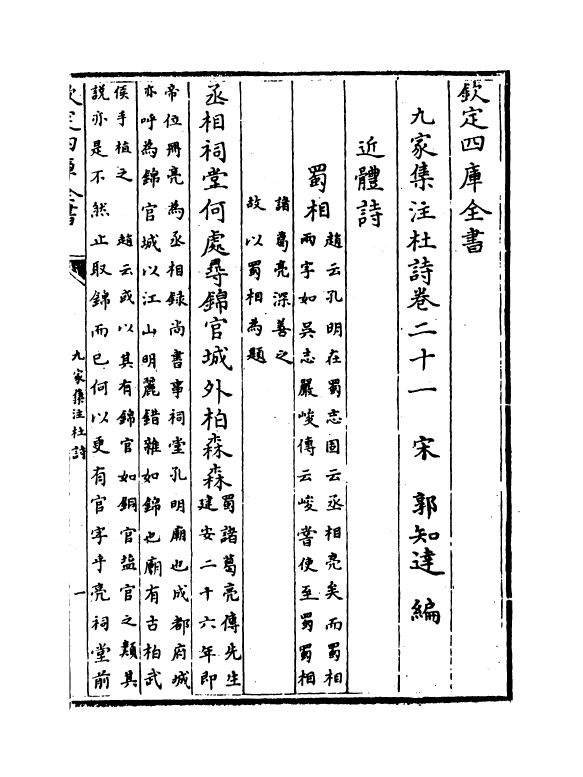 欽定四庫全書
九家集注杜詩卷二十一　宋　郭知達　編
近體詩
蜀相
趙云孔明在蜀志固云丞相亮矣而蜀相
兩字如吳志嚴峻傳云峻嘗使至蜀蜀相
諸葛亮深善之
故以蜀相為題
丞相祠堂何處尋錦官城外柏森森
蜀諸葛亮傳先生
建安二十六年即
帝位冊亮為丞相録尚書事祠堂孔明廟也成都府城
亦呼為錦官城以江山明麗錯雜如錦也廟有古柏武
侯手植之　趙云或以其有錦官如銅官盐官之類其
說亦是不然止取錦而已何以更有官字乎亮祠堂前
欽定四庫全書
九家集注杜詩
一